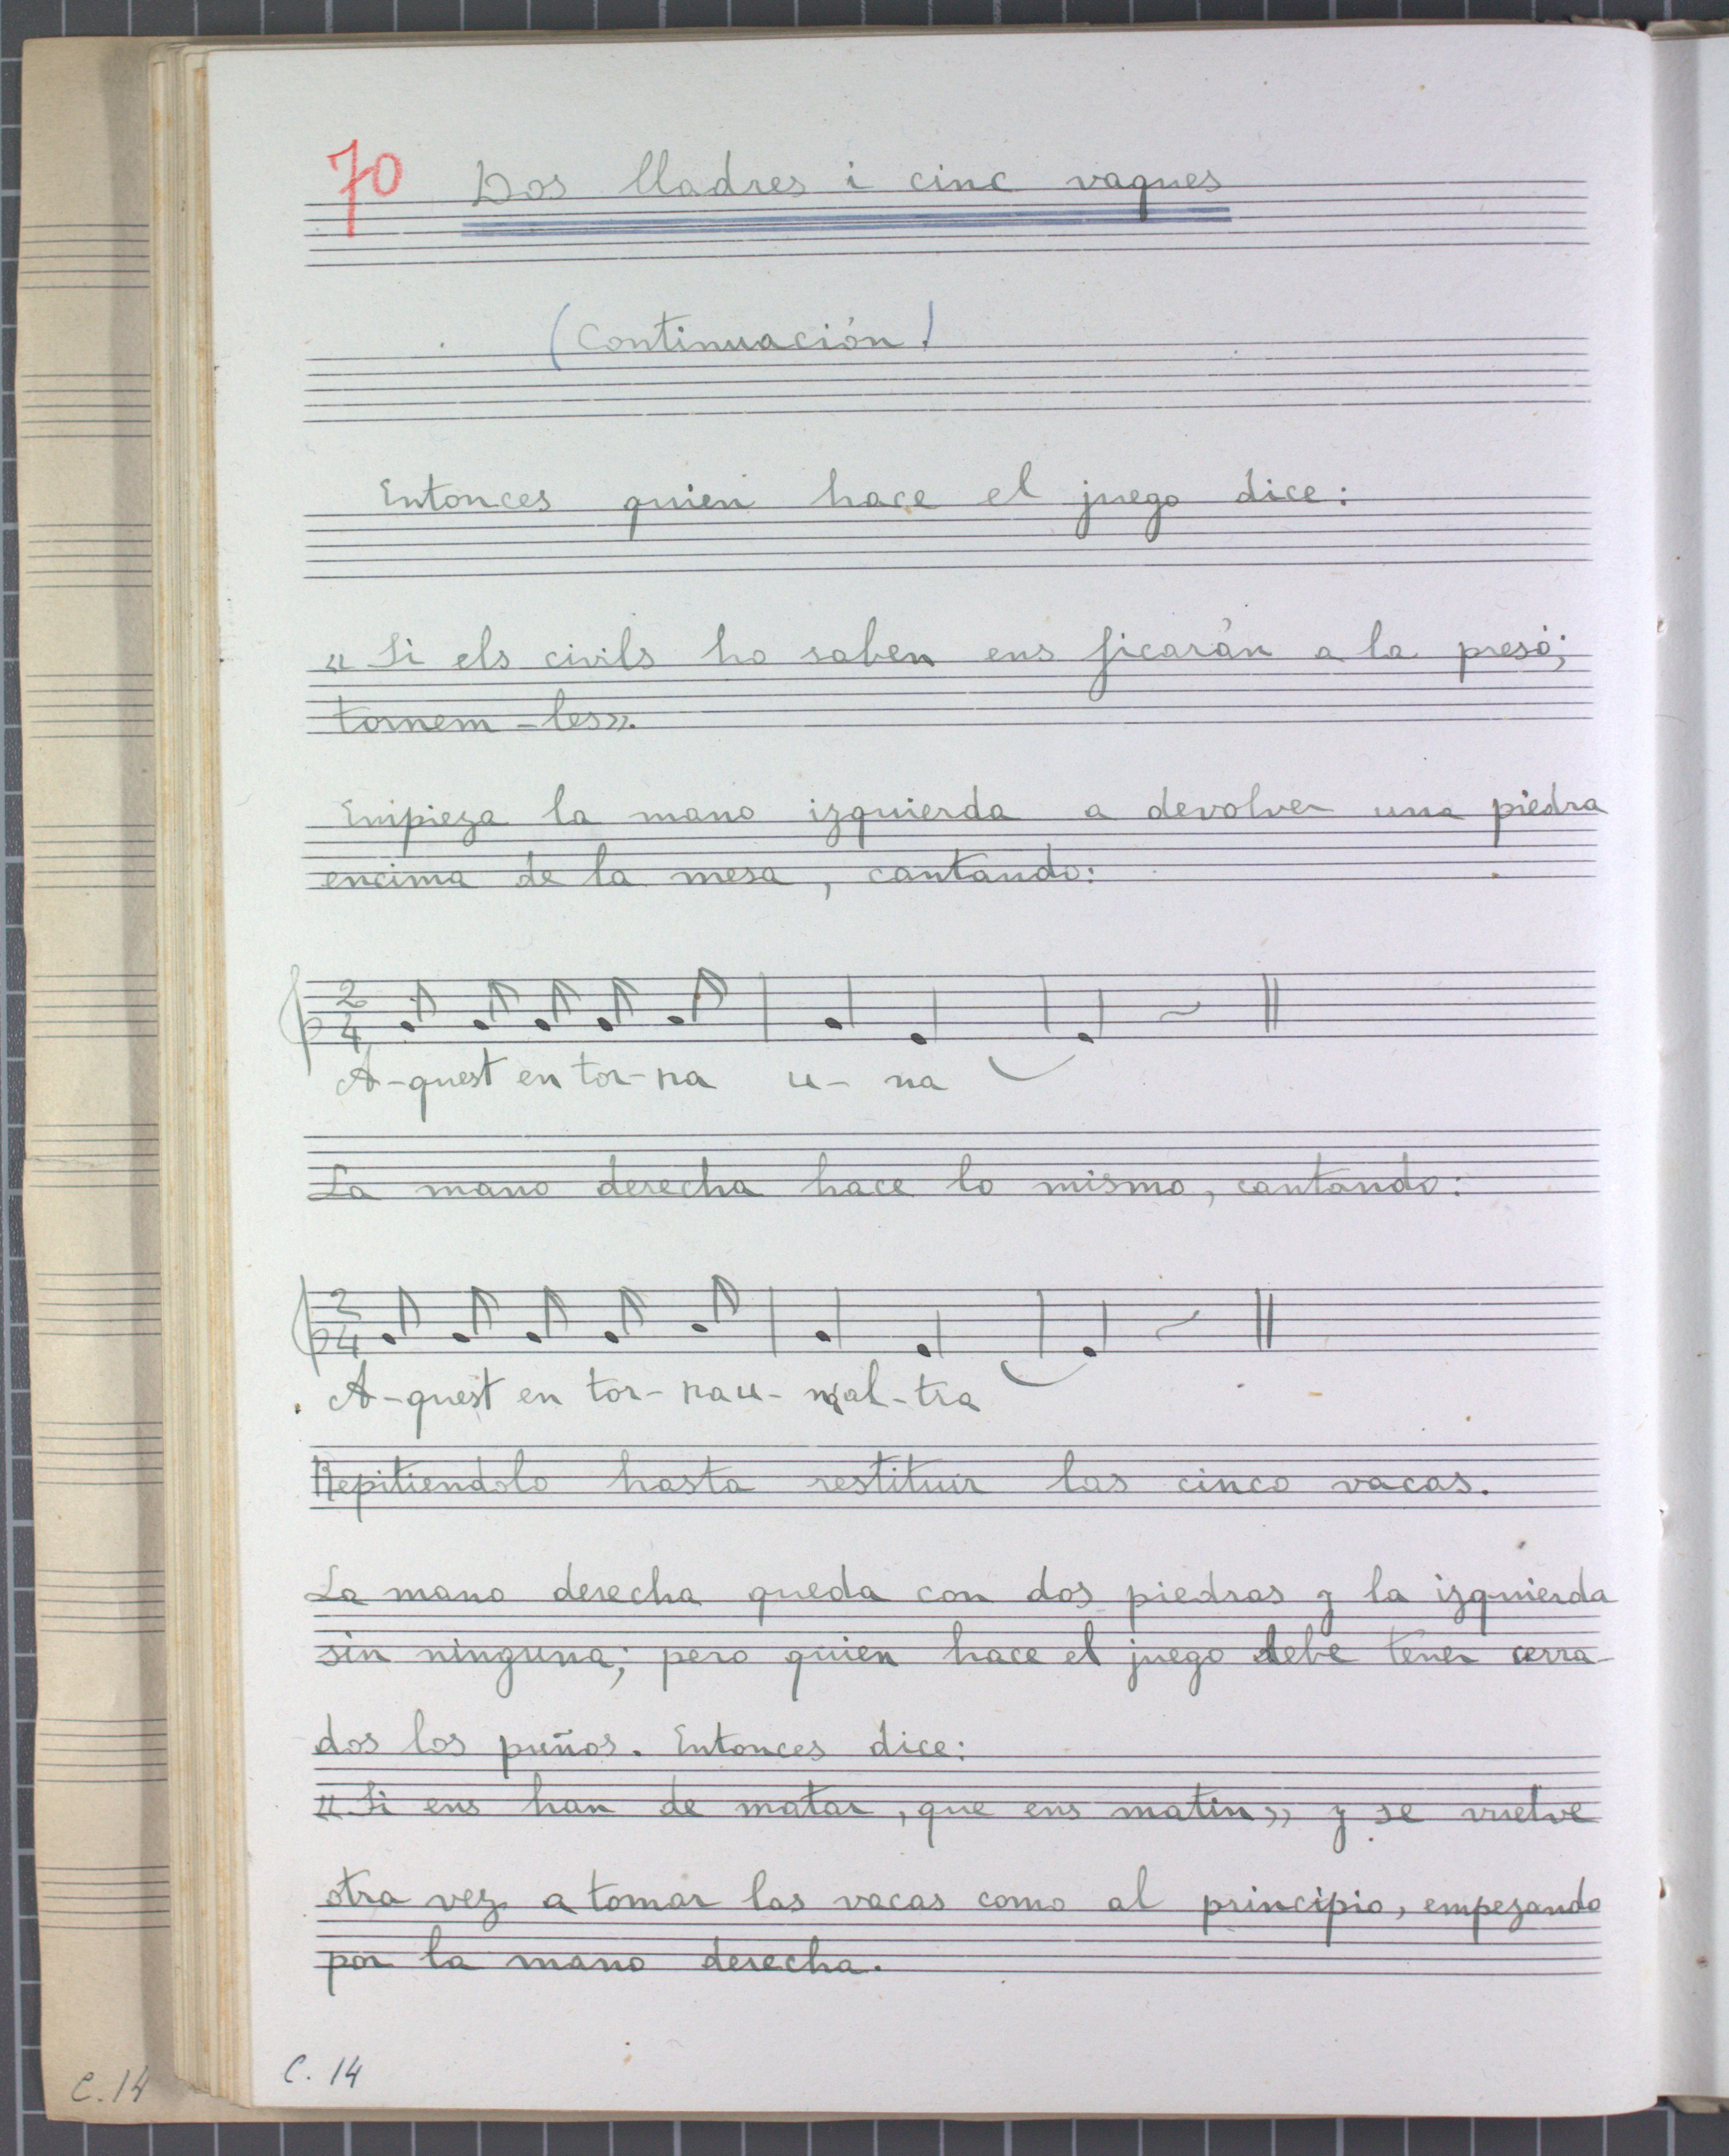 70 Dos lladres i cinc vaques
(Continuación)
Entonces quien hace el juego dice:
« Si els civils ho saben ens ficarán a la presó;
tornem-les».
Empieza la mano izquierda a devolver una piedra
encima de la mesa, cantando:
2
4
A-quest en tor-na u- na
La mano derecha hace lo mismo, cantando:
2
4
A-quest en tor-na u- n'al-tra
Repitiendolo hasta restituir las cinco vacas.
La mano derecha queda con dos piedras y la izquierda
sin ninguna; pero quien hace el juego debe tener cerra-
dos los puños. Entonces dice:
« Si ens han de matar, que ens matin» y se vuelve
otra vez a tomar las vacas como al principio, empezando
por la mano derecha.
C. 14
C. 14